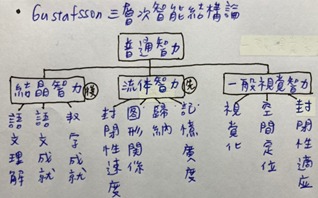 • Gustafsson 三層次智能結構論
普通智力
結晶智力 後
流体智力 先
一般視覚智力
語文理解
語文成就
数字成就
封閉性速度
図形関係
歸納
記憶廣度
視覚化
空間定位
封閉性適応